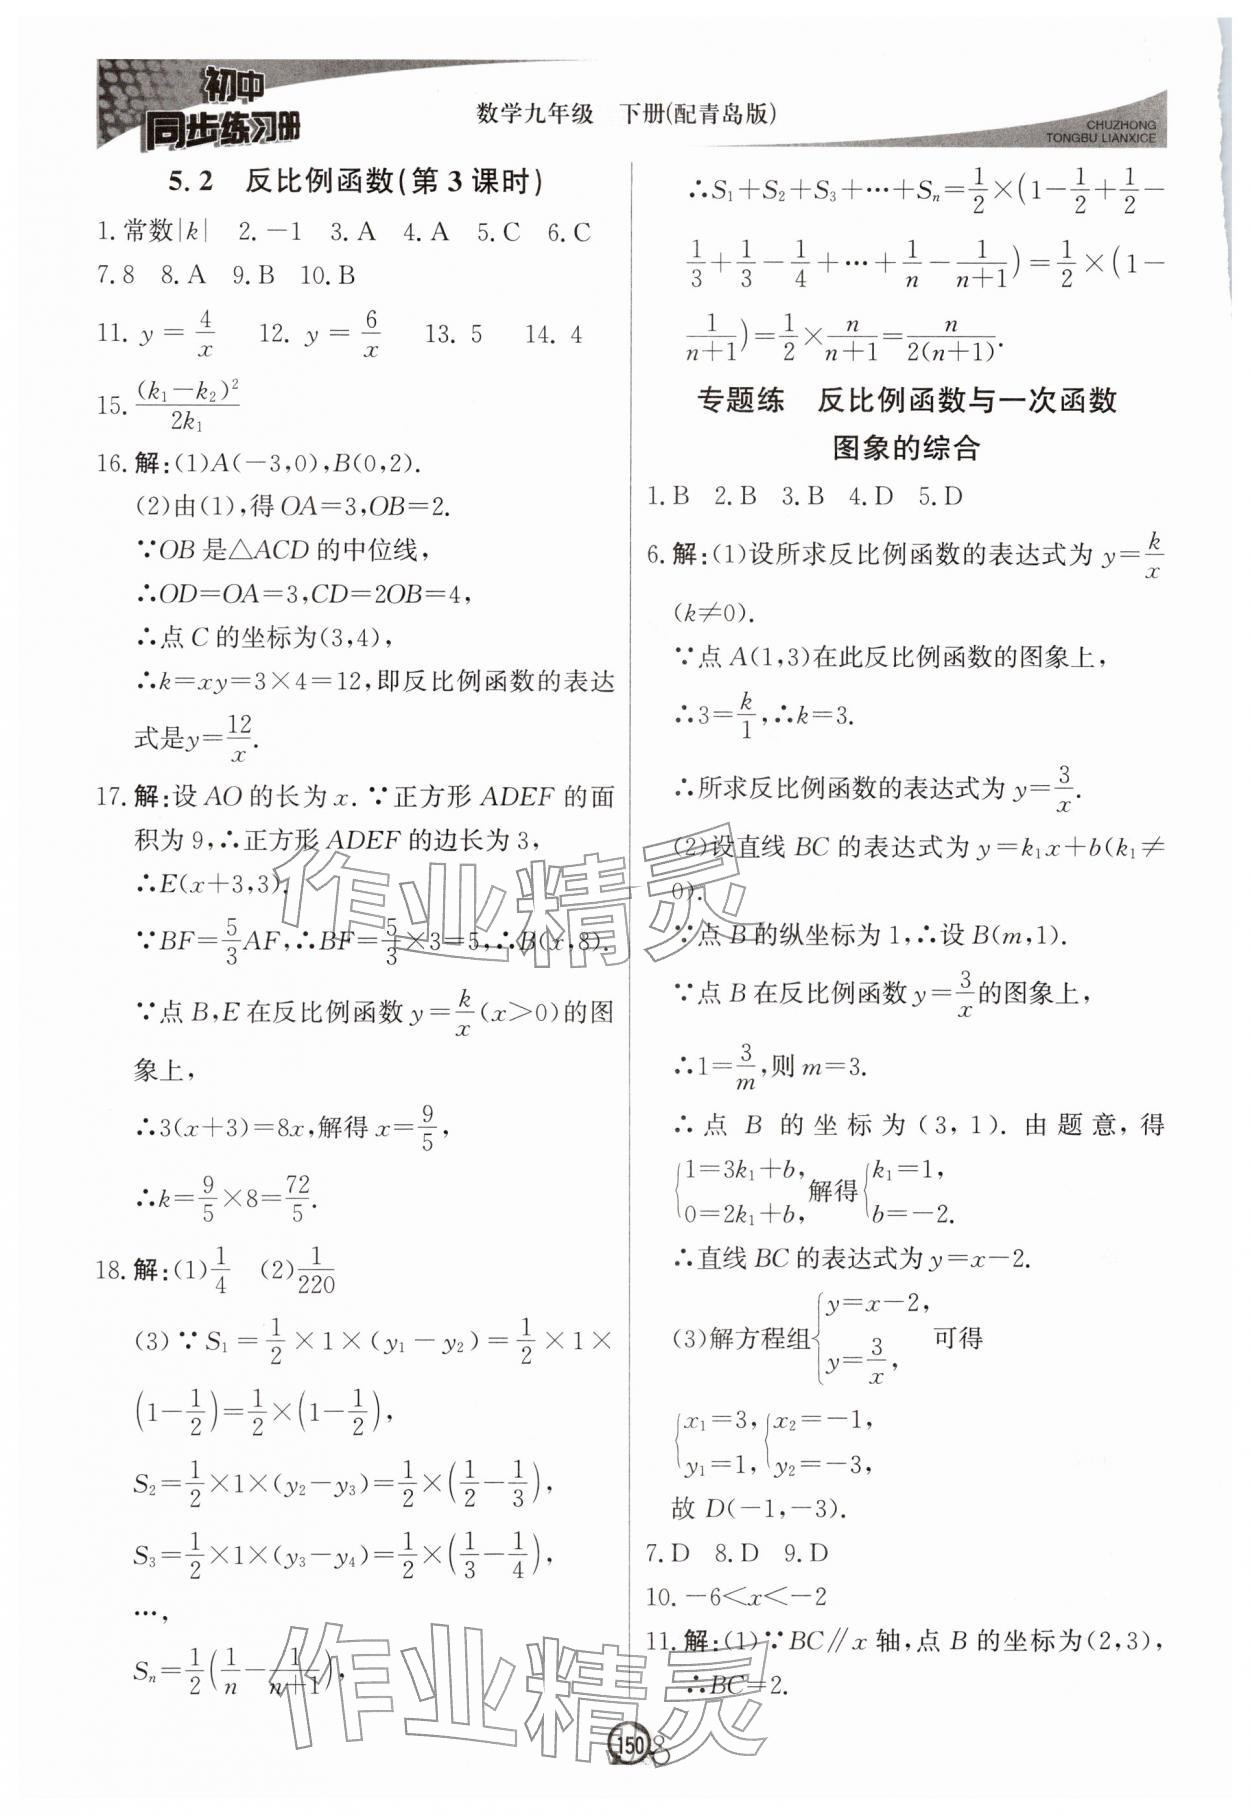 初中
同步练习册
数学九年级 下册(配青岛版)
CHUZHONG
TONGBU LIANXICE
5.2 反比例函数(第3课时)
1.常数|k| 2.-1 3.A 4.A 5.C 6.C
7.8 8.A 9.B 10.B
11. y = 4/x 12. y = 6/x 13. 5 14. 4
15. (k₁-k₂)²/2k₁
16.解:(1)A(-3,0),B(0,2).
(2)由(1),得OA=3,OB=2.
∵OB是△ACD的中位线,
∴OD=OA=3,CD=2OB=4,
∴点C的坐标为(3,4),
∴k=xy=3×4=12,即反比例函数的表达
式是y=12/x.
17.解:设AO的长为x.∵正方形ADEF的面
积为9,∴正方形ADEF的边长为3,
∴E(x+3,3).
∵BF=5/3AF,∴BF=5/3×3=5,∴B(x,8).
∵点B,E在反比例函数y=k/x(x>0)的图
象上,
∴3(x+3)=8x,解得x=9/5,
∴k=9/5×8=72/5.
18.解:(1)1/4 (2)1/220
(3)∵S₁=1/2×1×(y₁-y₂)=1/2×1×
(1-1/2)=1/2×(1-1/2),
S₂=1/2×1×(y₂-y₃)=1/2×(1/2-1/3),
S₃=1/2×1×(y₃-y₄)=1/2×(1/3-1/4),
…,
Sₙ=1/2(1/n-1/(n+1)),
∴S₁+S₂+S₃+…+Sₙ=1/2×(1-1/2+1/2-
1/3+1/3-1/4+…+1/n-1/(n+1))=1/2×(1-
1/(n+1))=1/2×n/(n+1)=n/2(n+1).
专题练 反比例函数与一次函数
图象的综合
1.B 2.B 3.B 4.D 5.D
6.解:(1)设所求反比例函数的表达式为y=k/x
(k≠0).
∵点A(1,3)在此反比例函数的图象上,
∴3=k/1,∴k=3.
∴所求反比例函数的表达式为y=3/x.
(2)设直线BC的表达式为y=k₁x+b(k₁≠
0).
∵点B的纵坐标为1,∴设B(m,1).
∵点B在反比例函数y=3/x的图象上,
∴1=3/m,则m=3.
∴点B的坐标为(3,1).由题意,得
{1=3k₁+b, 0=2k₁+b, 解得{k₁=1, b=-2.
∴直线BC的表达式为y=x-2.
(3)解方程组{y=x-2, y=3/x, 可得
{x₁=3, y₁=1, {x₂=-1, y₂=-3,
故D(-1,-3).
7.D 8.D 9.D
10.-6<x<-2
11.解:(1)∵BC∥x轴,点B的坐标为(2,3),
∴BC=2.
150
作业精灵
作业精灵